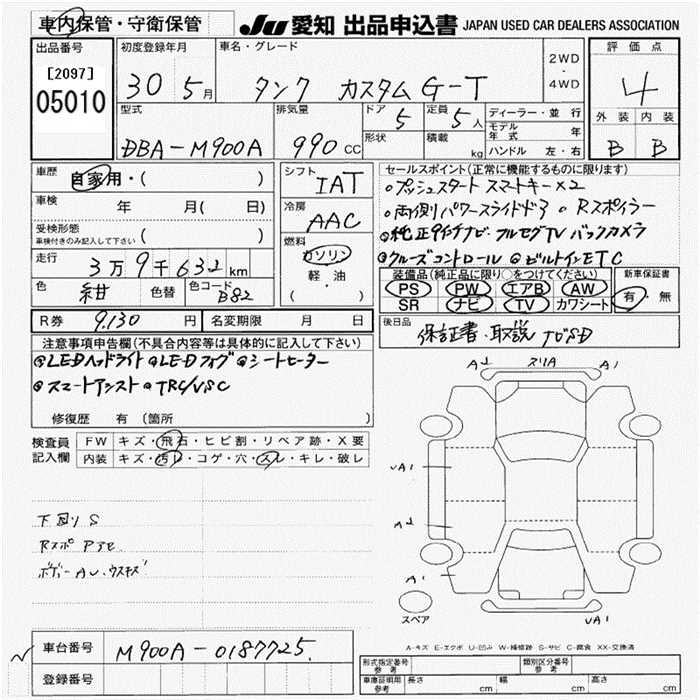 車内保管・守衛保管 JU 愛知 出品申込書 JAPAN USED CAR DEALERS ASSOCIATION
出品番号 初度登録年月 車名・グレード 評価点
[2097] 30 5月 タンク カスタム G-T 2WD・4WD 4
05010
型式 排気量 ドア 5 定員 5人 ディーラー・並行 外装 内装
DBA-M900A 990 CC 形状 積載 kg モデル年式 年 B B
ハンドル 左・右
車歴 自家用・( ) シフト IAT セールスポイント(正常に機能するものに限ります)
車検 年 月( 日) 冷房 AAC ◦プッシュスタート スマートキー×2
◦両側パワースライドドア ◦Rスポイラー
受検形態 車検付きのみ記入して下さい ( ) 燃料 ガソリン ◦純正9インチナビ フルセグTV バックカメラ
走行 3万9千632km 軽・油 ( ) ◦クルーズコントロール ◦ビルトインETC
色 紺 色替 色コード B82 装備品(純正品に限り○をつけてください) 新車保証書
PS PW エアB AW 有・無
SR ナビ TV カワシート
R券 9,130 円 名変期限 月 日 後日品 保証書・取説 ナビSD
注意事項申告欄(不具合内容等は具体的に記入して下さい)
◦LEDヘッドライト ◦LEDフォグ ◦シートヒーター
◦スマートアシスト ◦TRC/VSC
修復歴 有 (箇所 )
検査員記入欄 FW キズ・飛石・ヒビ割・リペア跡・X要
内装 キズ・汚レ・コゲ・穴・スレ・キレ・破レ
A-1 スリA A1
UA1
A-2
A1
UA1
スペア
下回りS
Rスポ Pアセ
ボディーAU・ウスキズ
A-キズ E-エクボ U-凹み W-補修跡 S-サビ C-腐食 XX-交換済
車台番号 M900A-0187725
登録番号
形式指定番号 参考 類別区分番号 参考
車庫証明用 参考 長さ cm 幅 cm 高さ cm